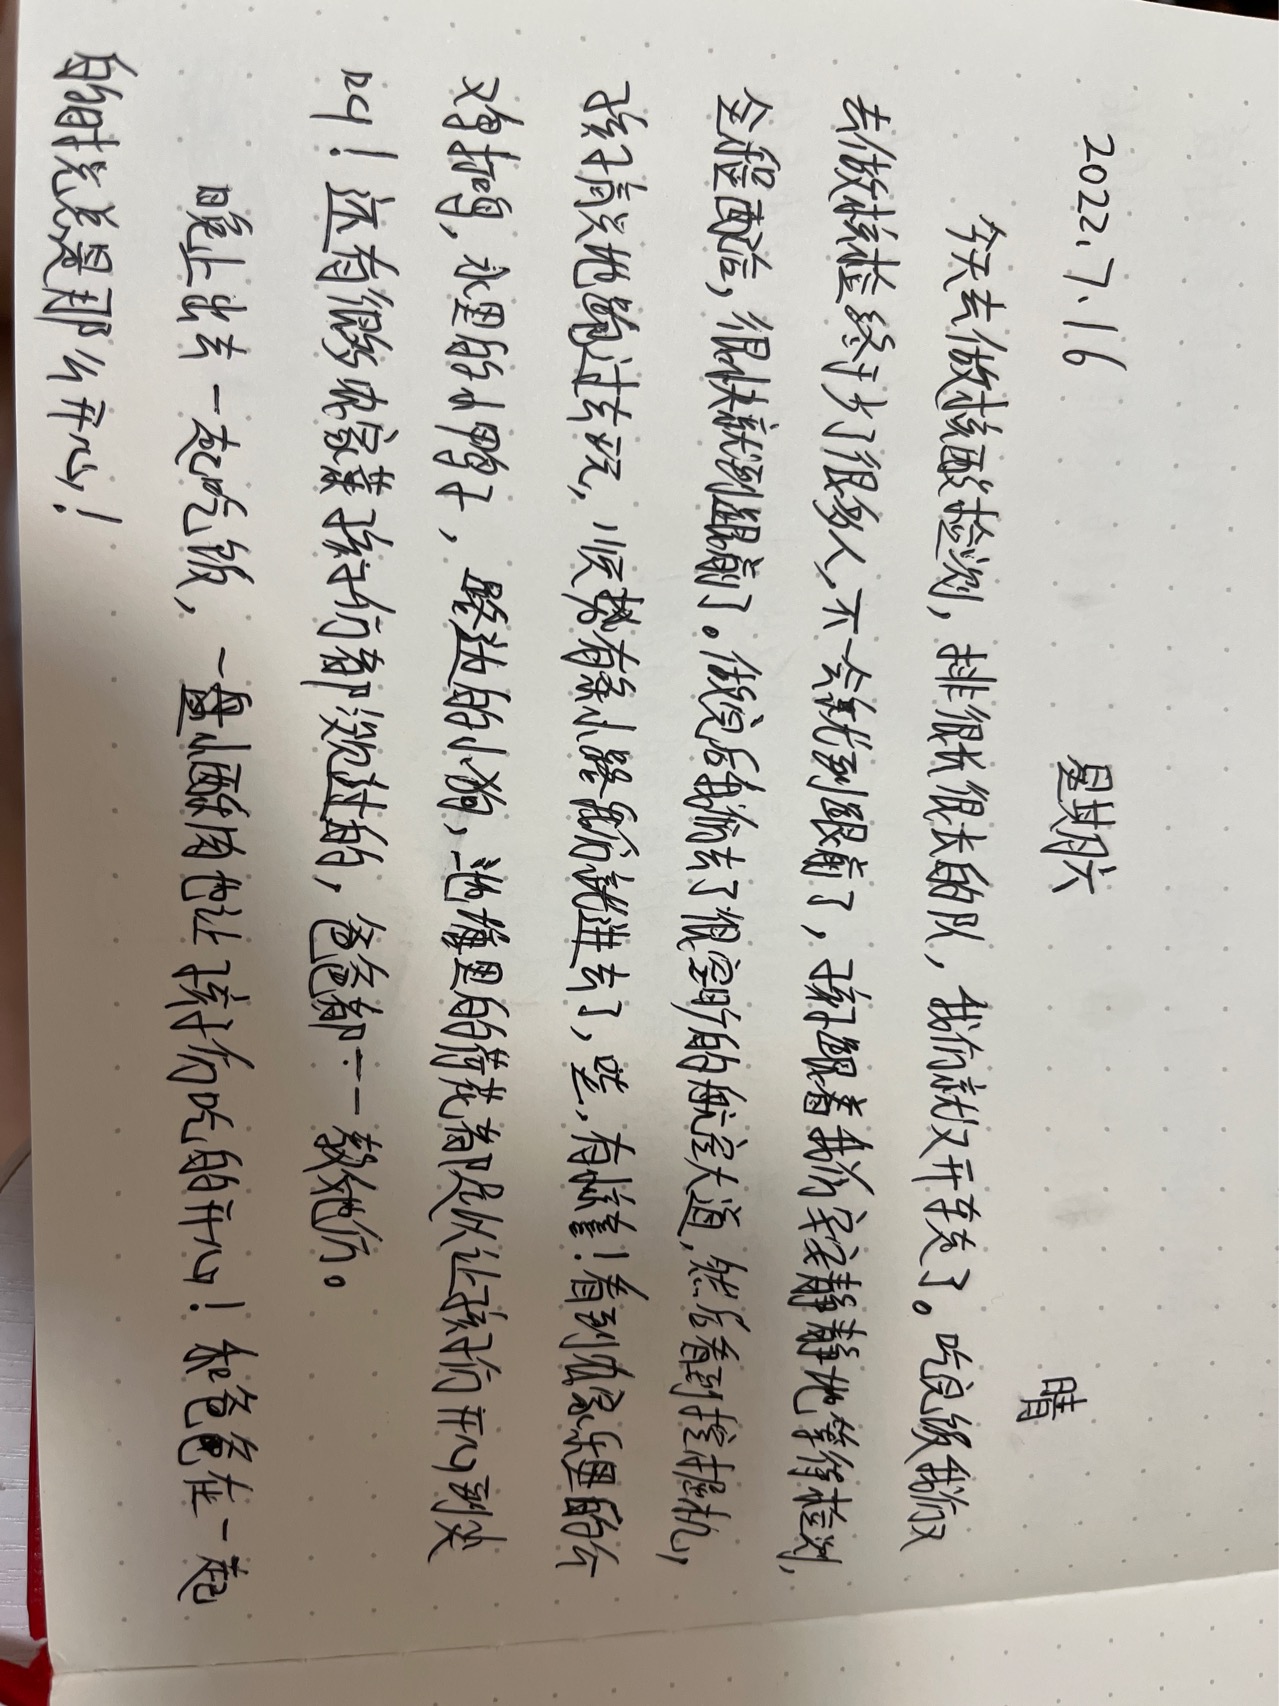 2022.7.16 星期六 晴
今天去做核酸检测，排很长很长的队，我们就又开车走了。吃完饭我们又
去做核检终于少了很多人，不一会就到跟前了，孩子跟着我们安安静静地等待检测，
全程配合，很快就到跟前了。做完后我们去了很空旷的航空大道，然后看到挖掘机，
孩子高兴地跑过去玩，顺势有条小路我们就进去了，哇，有惊喜！看到农家乐里的公
鸡打鸣，水里的小鸭子，路边的小狗，池塘里的荷花都足以让孩子们开心到处
叫！还有很多农家菜孩子们都没见过的，爸爸都一一教她们。
晚上出去一起吃饭，一盘小酥肉也让孩子们吃的开心！和爸爸在一起
的时光总是那么开心！